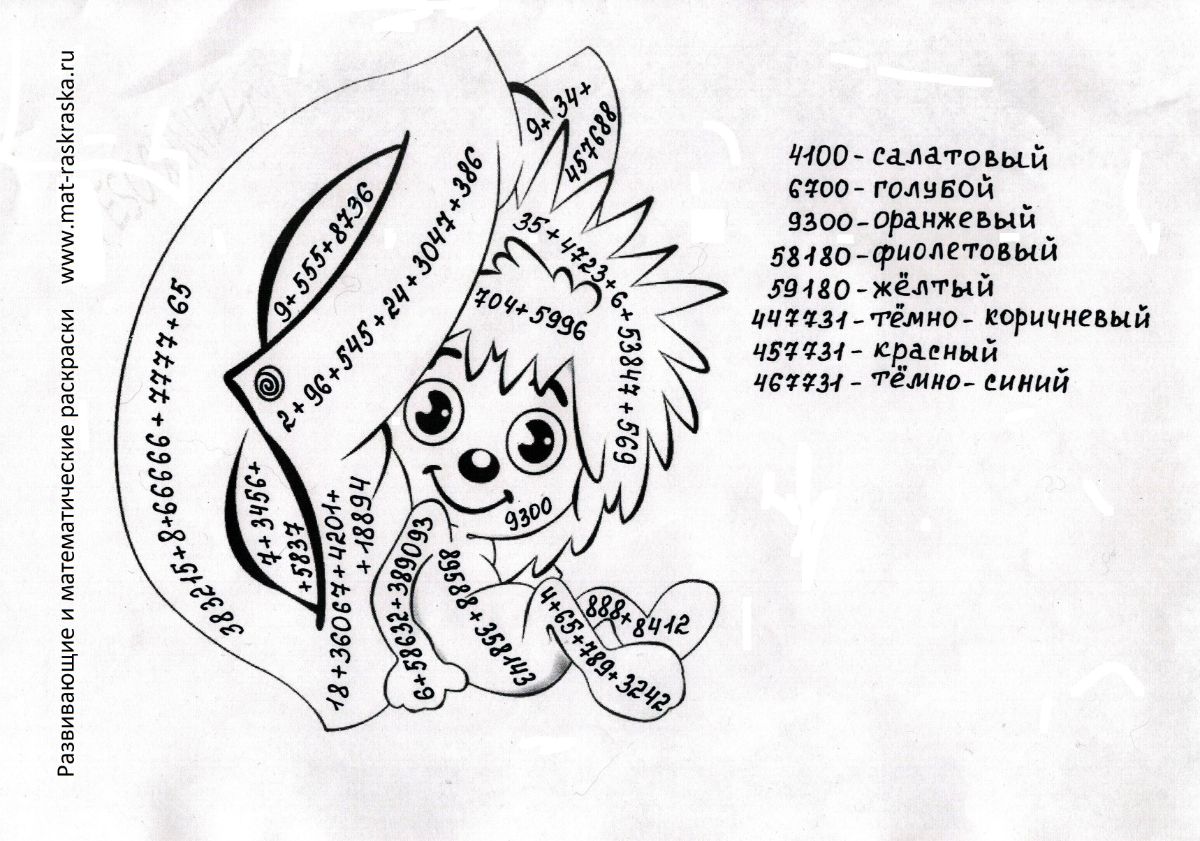 Развивающие и математические раскраски www.mat-raskraska.ru
9+34+
457688
9+555+8736
2+96+545+24+3047+386
383215+8+66666+7777+65
35+4723+6+53847+569
704+5996
7+3456+
+5837
18+36067+4201+
+18894
9300
6+58632+389093
89588+358143
4+65+789+3242
888+8412
4100-салатовый
6700-голубой
9300-оранжевый
58180-фиолетовый
59180-жёлтый
447731-тёмно-коричневый
457731-красный
467731-тёмно-синий